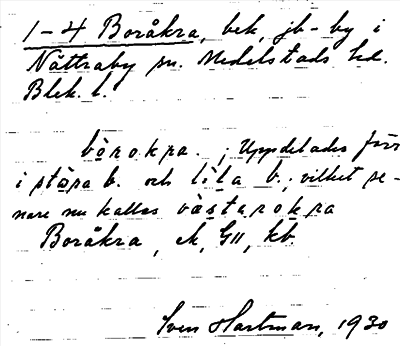 1-4 Boråkra, bek, jb-by i
Nättraby sn. Medelstads hd.
Blek. l.
bòrokra. ; Uppdelades förr
i stòra b. och lìla b.; vilket se-
nare nu kallas vàstarokra
Boråkra, ek, G11, kb.
Sven Hartman, 1930